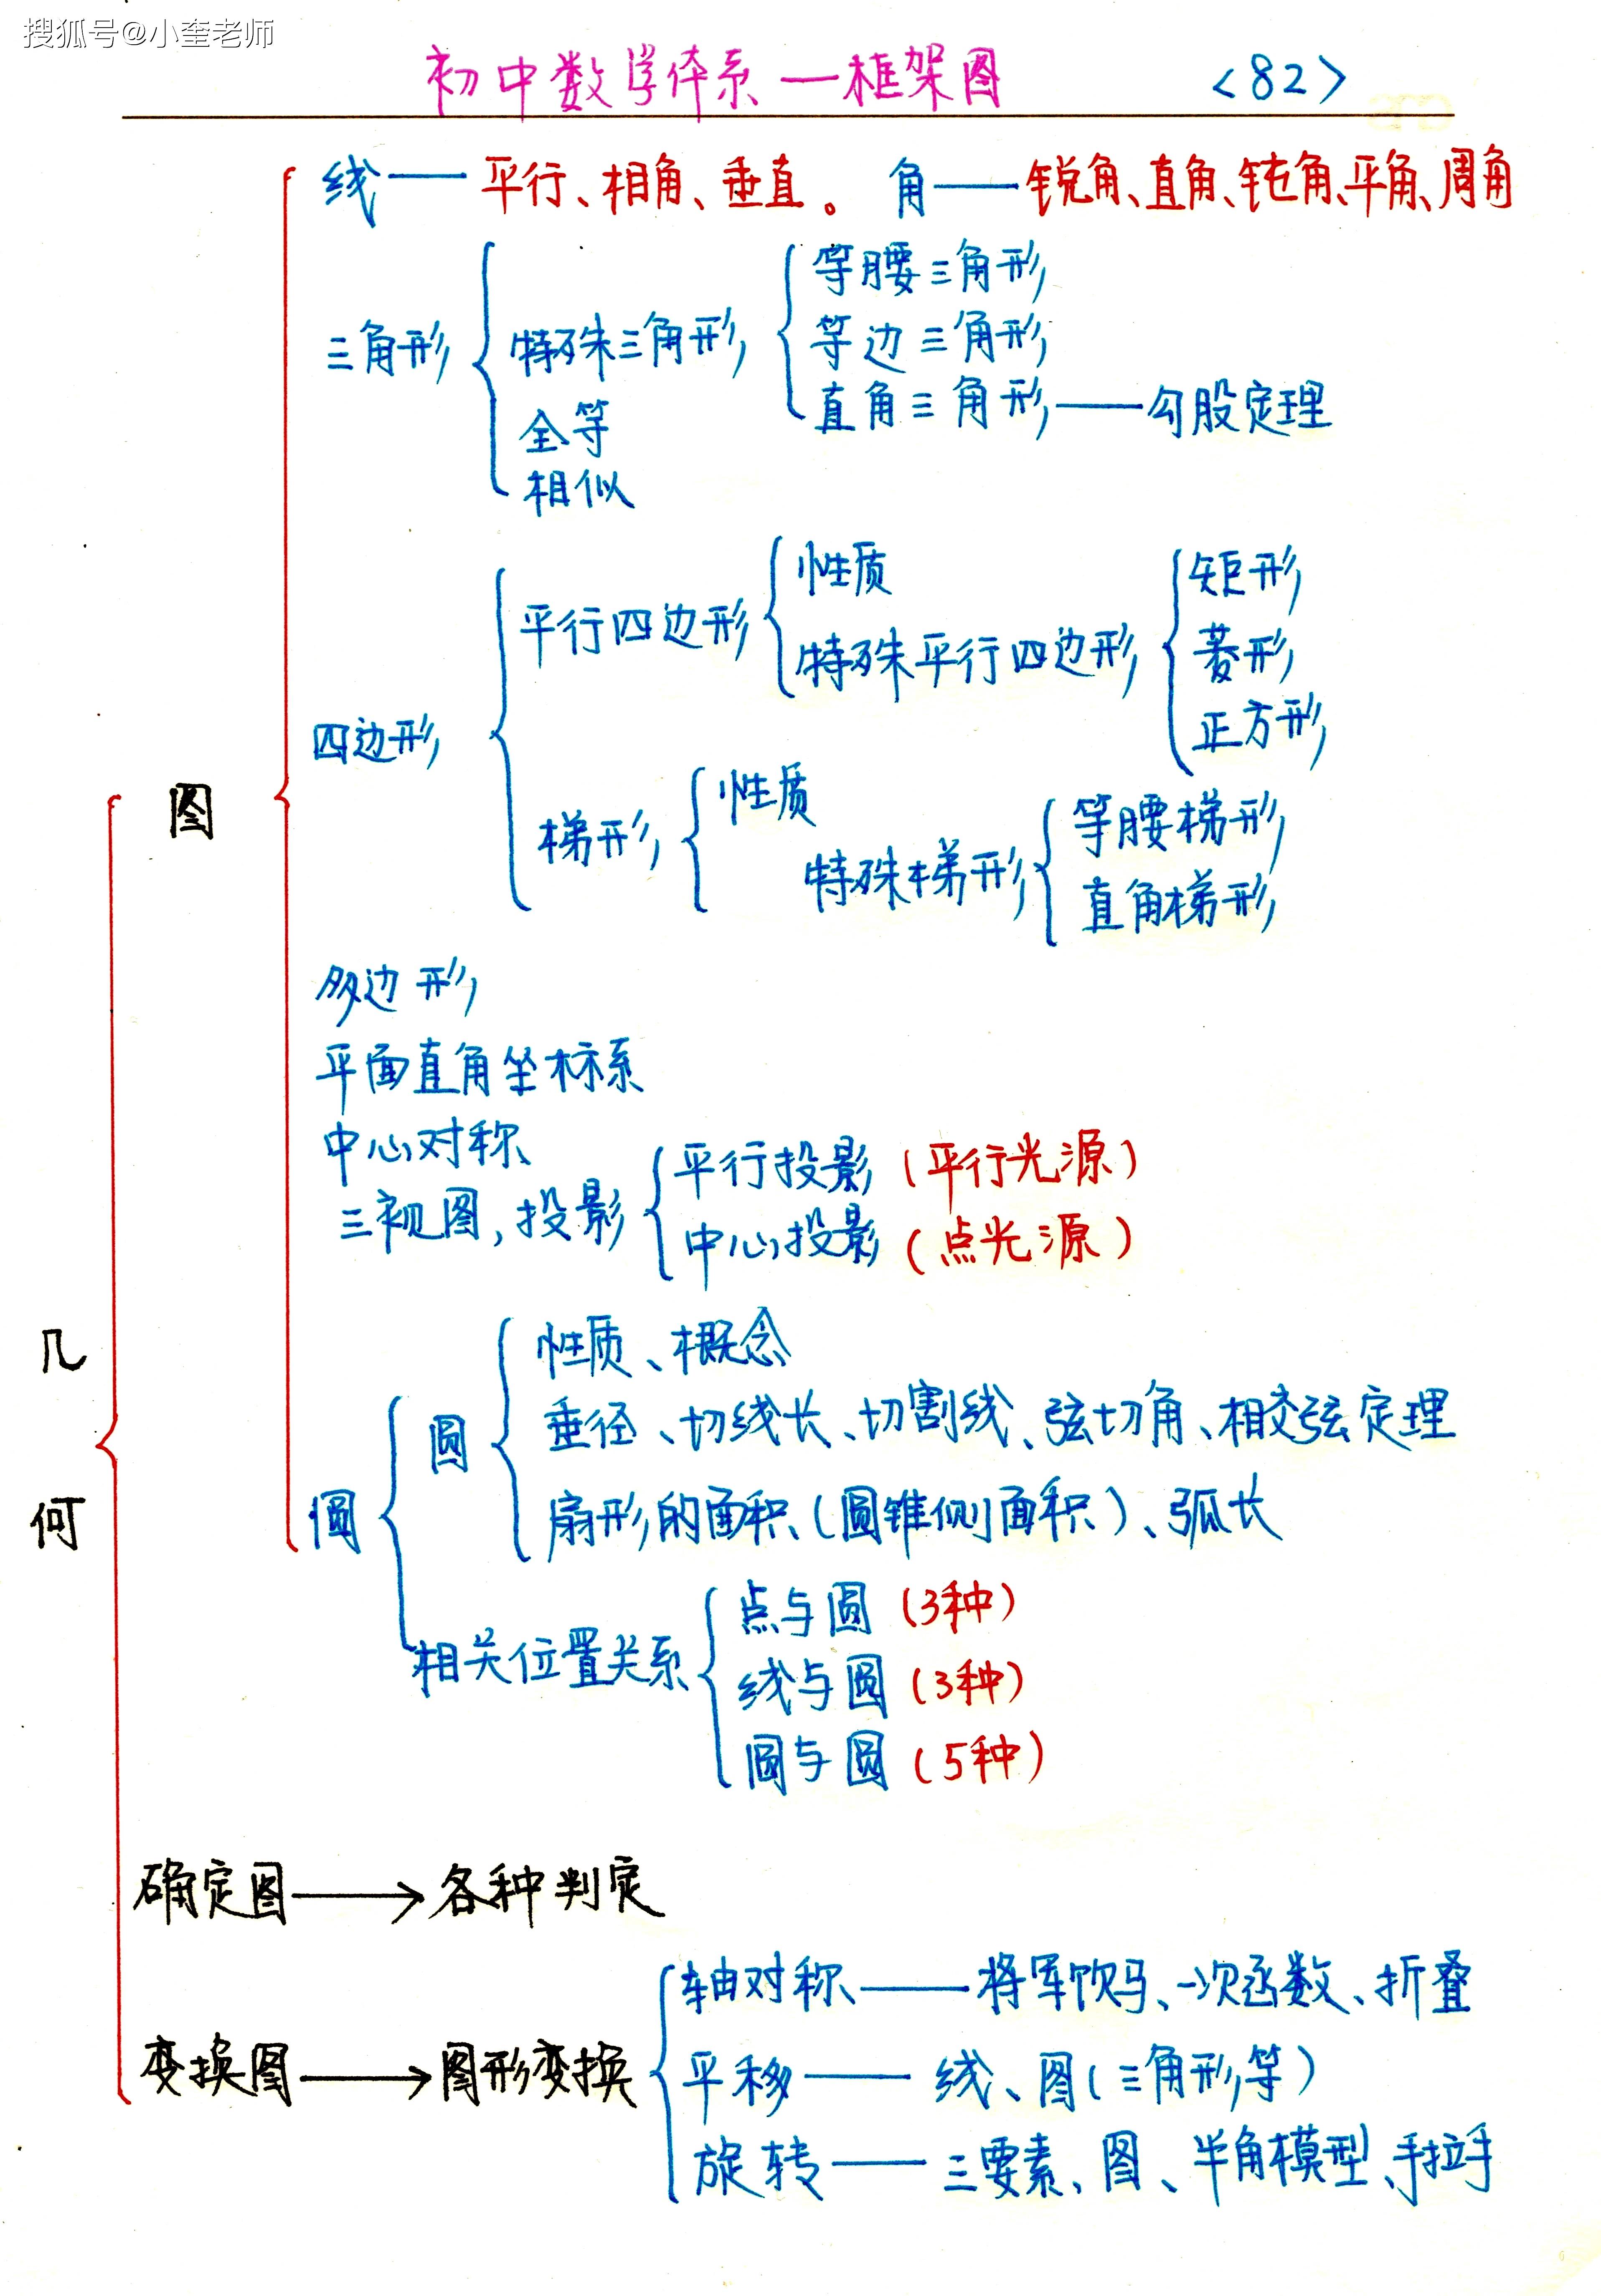 搜狐号@小奎老师
初中数学体系—框架图 <82>
线——平行、相角、垂直。 角——锐角、直角、钝角、平角、周角
等腰三角形
三角形 特殊三角形 等边三角形
直角三角形——勾股定理
全等
相似
性质 矩形
平行四边形 特殊平行四边形 菱形
正方形
四边形
图
性质
梯形 特殊梯形 等腰梯形
直角梯形
多边形
平面直角坐标系
中心对称
平行投影(平行光源)
三视图,投影
中心投影(点光源)
几何
性质、概念
圆 垂径、切线长、切割线、弦切角、相交弦定理
圆 扇形的面积(圆锥侧面积)、弧长
点与圆(3种)
相关位置关系 线与圆(3种)
圆与圆(5种)
确定图→各种判定
轴对称——将军饮马、一次函数、折叠
变换图→图形变换 平移——线、图(三角形等)
旋转——三要素、图、半角模型、手拉手